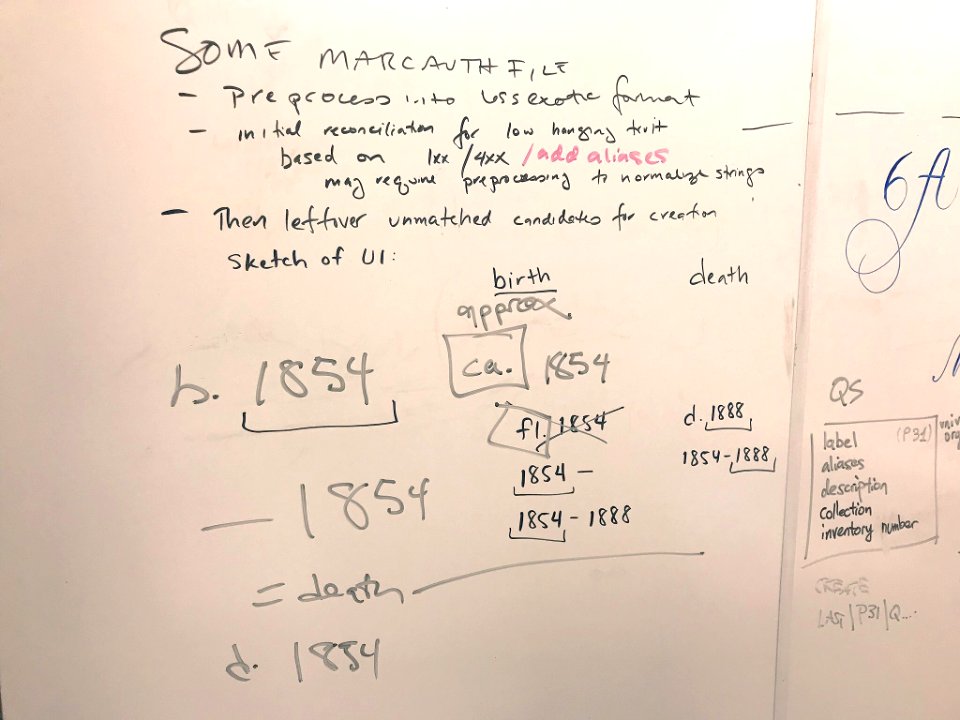 SOME MARCAUTHFILE
- Preprocess into less exotic format
- initial reconciliation for low hanging fruit
based on 1xx /4xx /add aliases
may require preprocessing to normalize strings
- Then leftover unmatched candidates for creation
Sketch of UI:
birth
approx.
ca. 1854
fl. 1854
1854 -
1854 - 1888
death
d. 1888
1854-1888
b. 1854
— 1854
= death
d. 1854
6A
QS
label (P31)
aliases
description
collection
inventory number
CREATE
LAST|P31|Q...